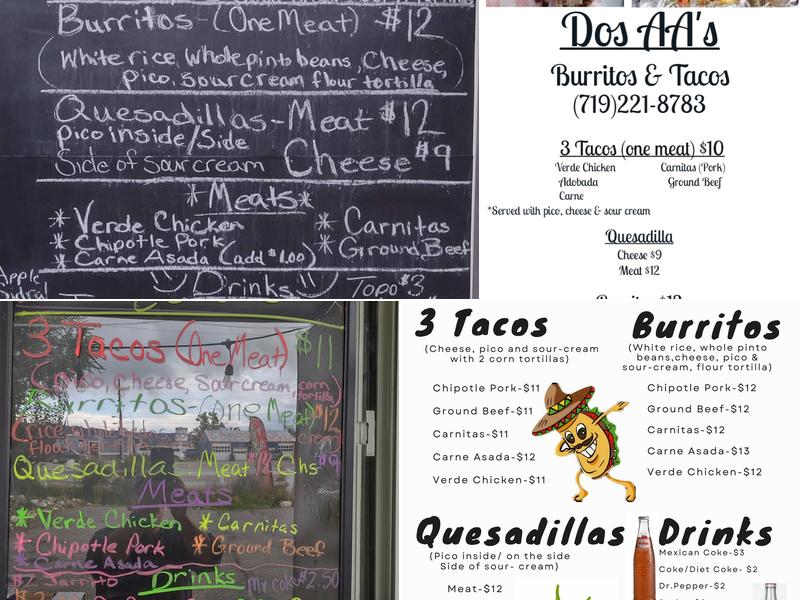 Burritos - (One Meat) $12
(White rice, Whole pinto beans, Cheese,
pico, Sour cream flour tortilla)
Quesadillas - Meat $12
pico inside/Side
Side of Sour cream Cheese $9
*Meats*
* Verde Chicken
* Carnitas
* Chipotle Pork
* Ground Beef
* Carne Asada (add $1.00)
Apple
Drinks
Topo $3
Dos AA's
Burritos & Tacos
(719)221-8783
3 Tacos (one meat) $10
Verde Chicken
Carnitas (Pork)
Adobada
Ground Beef
Carne
*Served with pico, cheese & sour cream
Quesadilla
Cheese $9
Meat $12
3 Tacos (One Meat) $11
(Pico, Cheese, Sour cream, corn
tortilla)
Burritos - (one Meat) $12
Quesadillas - Meat $12 Chs $9
Meats
* Verde Chicken
* Carnitas
* Chipotle Pork
* Ground Beef
* Carne Asada
Drinks
Mx coke $2.50
3 Tacos
(Cheese, pico and sour-cream
with 2 corn tortillas)
Chipotle Pork-$11
Ground Beef-$11
Carnitas-$11
Carne Asada-$12
Verde Chicken-$11
Burritos
(White rice, whole pinto
beans,cheese, pico &
sour-cream, flour tortilla)
Chipotle Pork-$12
Ground Beef-$12
Carnitas-$12
Carne Asada-$13
Verde Chicken-$12
Quesadillas
(Pico inside/ on the side
Side of sour- cream)
Meat-$12
Drinks
Mexican Coke-$3
Coke/Diet Coke- $2
Dr.Pepper-$2